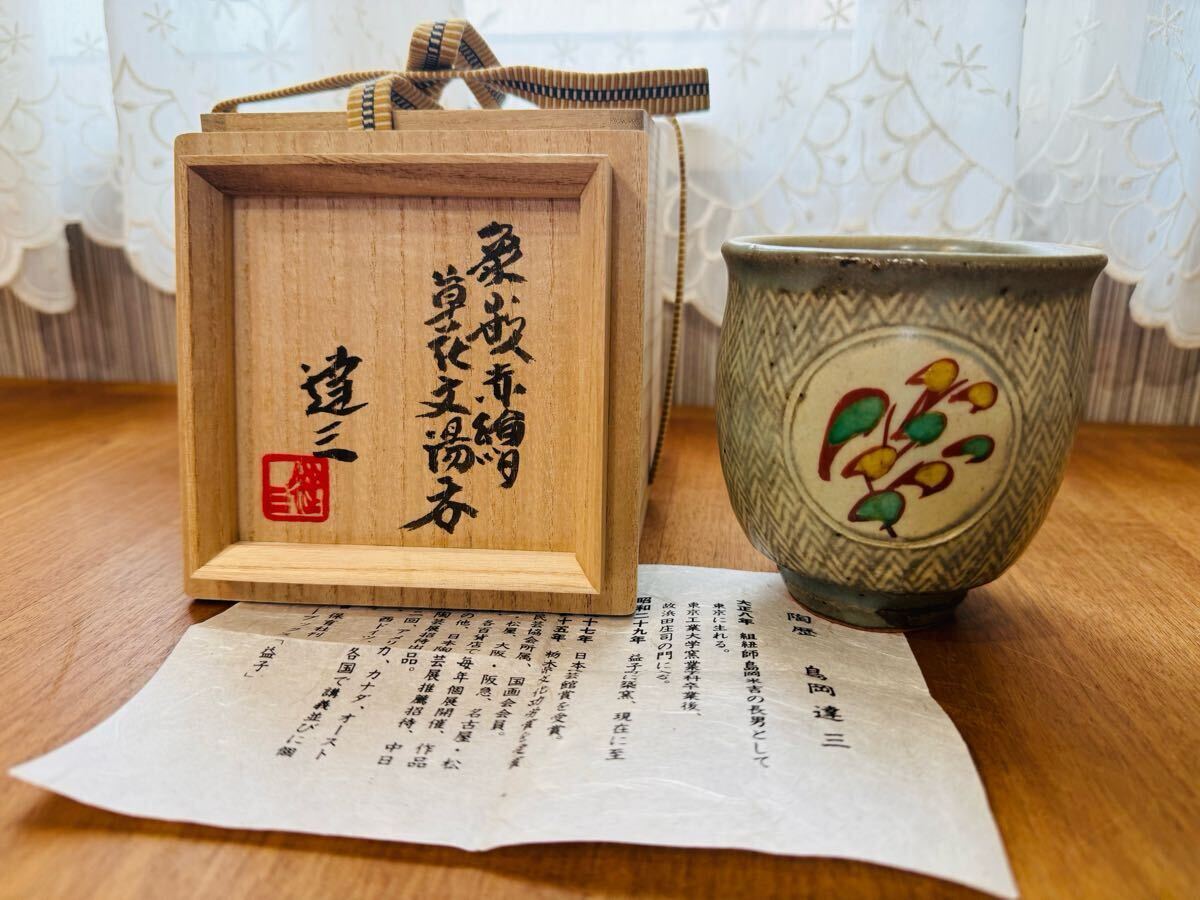 象嵌赤繪
草花文湯呑
達三
陶歴 島岡達三
大正八年 組紐師島岡米吉の長男として
東京に生れる。
東京工業大学窯業科卒業後、
故浜田庄司の門に入る。
昭和二十九年 益子に築窯、現在に至
十七年 日本芸館賞を受賞。
十五年 栃木県文化功労賞を受賞
民芸協会所属、国画会会員。
松屋、大阪・阪急、名古屋・松
各百貨店で毎年個展開催、作品
の他、日本陶芸展推薦招待、中日
陶芸展招待出品。
カ、カナダ、オースト
各国で講義並びに個
「益子」